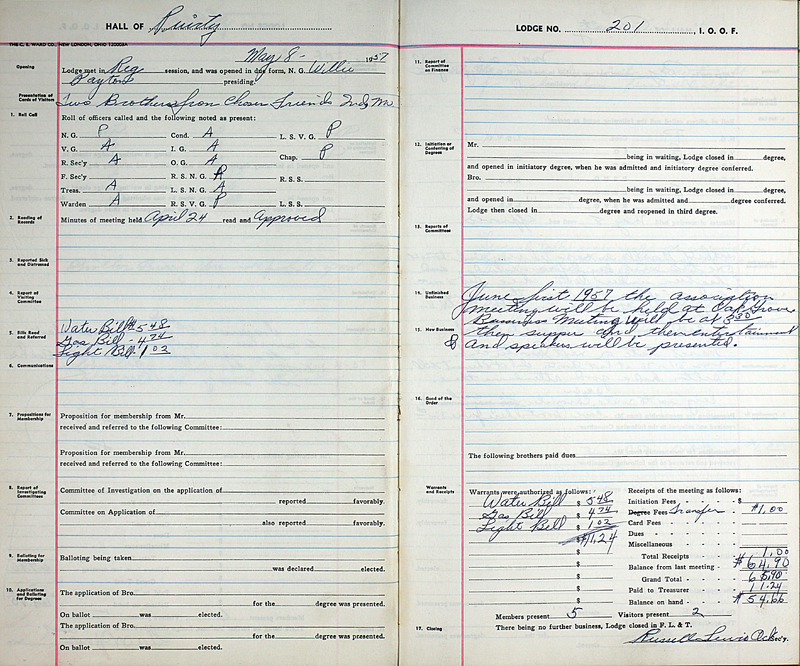 HALL OF Purity
THE C. E. WARD CO., NEW LONDON, OHIO
Opening
May 8 - 1957
Lodge met in Reg session, and was opened in due form, N. G. Willie
Dayton presiding.
Presentation of Cards of Visitors
Two Brothers from Chosen Friends
1. Roll Call
Roll of officers called and the following noted as present:
N. G. P Cond. A L. S. V. G. P
V. G. A I. G. A
R. Sec'y A O. G. A Chap. P
F. Sec'y R. S. N. G. A R. S. S.
Treas. A L. S. N. G. A
Warden A R. S. V. G. P L. S. S.
2. Reading of Records
Minutes of meeting held April 24 read and Approved
3. Reported Sick and Distressed
4. Report of Visiting Committee
5. Bills Read and Referred
Water Bill $5.48
Gas Bill - 4.74
Light Bill - 1.02
6. Communications
7. Propositions for Membership
Proposition for membership from Mr.
received and referred to the following Committee:
Proposition for membership from Mr.
received and referred to the following Committee:
8. Report of Investigating Committees
Committee of Investigation on the application of
reported favorably.
Committee on Application of
also reported favorably.
9. Balloting for Membership
Balloting being taken
was declared elected.
10. Applications and Balloting for Degrees
The application of Bro.
for the degree was presented.
On ballot was elected.
The application of Bro.
for the degree was presented.
On ballot was elected.
LODGE NO. 201, I. O. O. F.
11. Report of Committee on Finance
12. Initiation or Conferring of Degrees
Mr.
being in waiting, Lodge closed in degree,
and opened in initiatory degree, when he was admitted and initiatory degree conferred.
Bro.
being in waiting, Lodge closed in degree,
and opened in degree, when he was admitted and degree conferred.
Lodge then closed in degree and reopened in third degree.
13. Reports of Committees
14. Unfinished Business
June first 1957 the association
meeting will be held at Oak Grove
Business Meeting will be at 5:30
15. New Business
then supper and then entertainment
& and speakers will be presented.
16. Good of the Order
The following brothers paid dues
Warrants and Receipts
Warrants were authorized as follows:
Water Bill $ 5.48
Gas Bill $ 4.74
Light Bill $ 1.02
$11.24
Receipts of the meeting as follows:
Initiation Fees - $
Degree Fees Transfer $1.00
Card Fees
Dues
Miscellaneous
Total Receipts 1.00
Balance from last meeting - $64.90
Grand Total - 65.90
Paid to Treasurer 11.24
Balance on hand - $54.66
Members present 5 Visitors present 2
17. Closing
There being no further business, Lodge closed in F. L. & T.
Russell Lewis Sec'y.